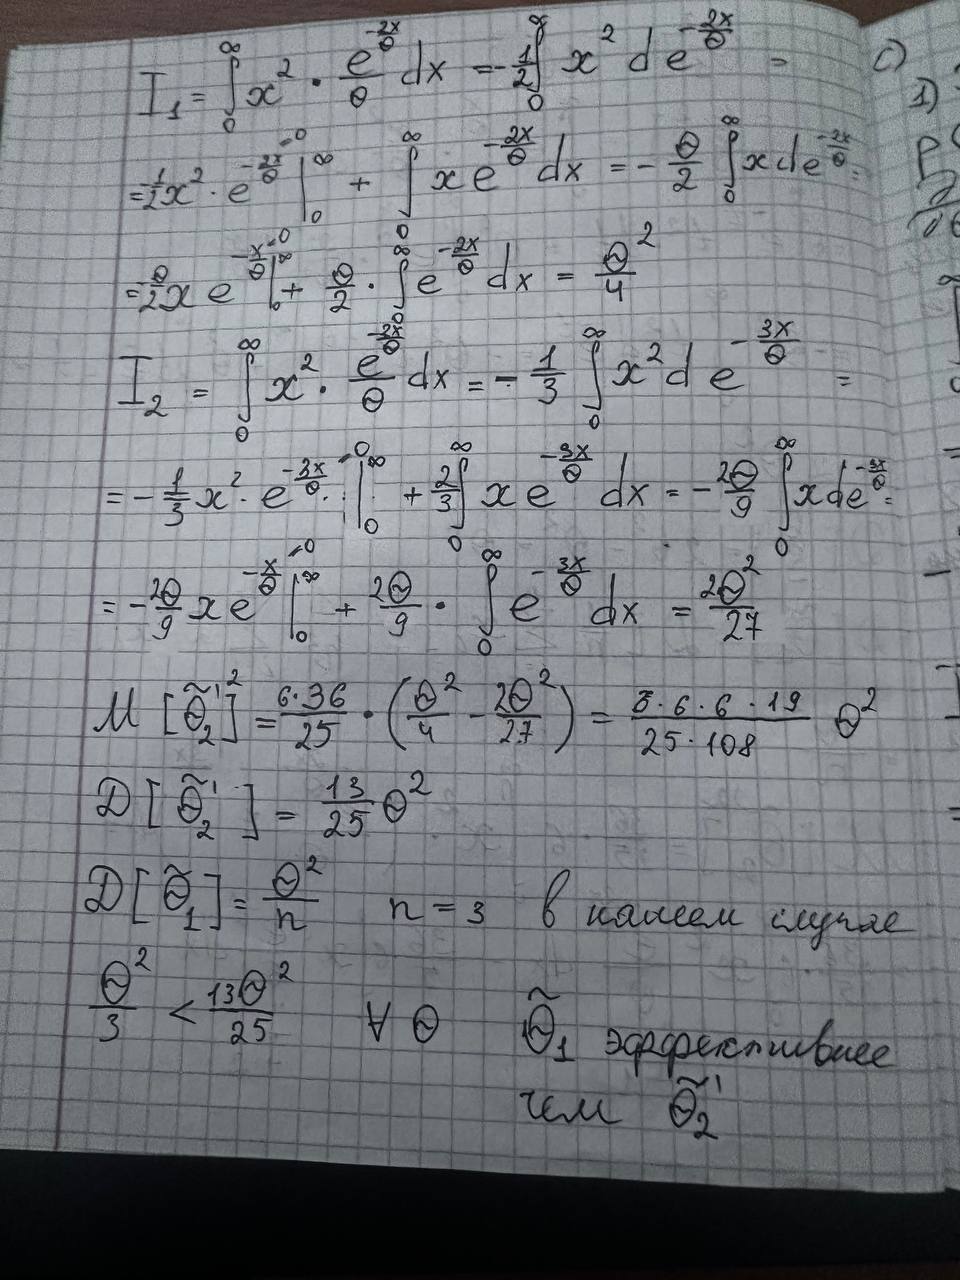 I₁ = ∫₀^∞ x² · e^(-2x/θ)/θ dx = -1/2 ∫₀^∞ x² d e^(-2x/θ) =
= -1/2 x² · e^(-2x/θ) |₀^∞ →0 + ∫₀^∞ x e^(-2x/θ) dx = -θ/2 ∫₀^∞ x d e^(-2x/θ) =
= -θ/2 x e^(-x/θ) |₀^∞ →0 + θ/2 · ∫₀^∞ e^(-2x/θ) dx = θ²/4
I₂ = ∫₀^∞ x² · e^(-2x/θ)/θ dx = -1/3 ∫₀^∞ x² d e^(-3x/θ) =
= -1/3 x² · e^(-3x/θ) · |₀^∞ →0 + 2/3 ∫₀^∞ x e^(-3x/θ) dx = -2θ/9 ∫₀^∞ x d e^(-3x/θ) =
= -2θ/9 x e^(-x/θ) |₀^∞ →0 + 2θ/9 · ∫₀^∞ e^(-3x/θ) dx = 2θ²/27
M [θ̃₂'²] = 6·36/25 · (θ²/4 - 2θ²/27) = 6·6·6·19/25·108 θ²
D [θ̃₂'] = 13/25 θ²
D [θ̃₁] = θ²/n n = 3 в нашем случае
θ²/3 < 13θ²/25 ∀ θ θ̃₁ эффективнее
чем θ̃₂'
c)
1)